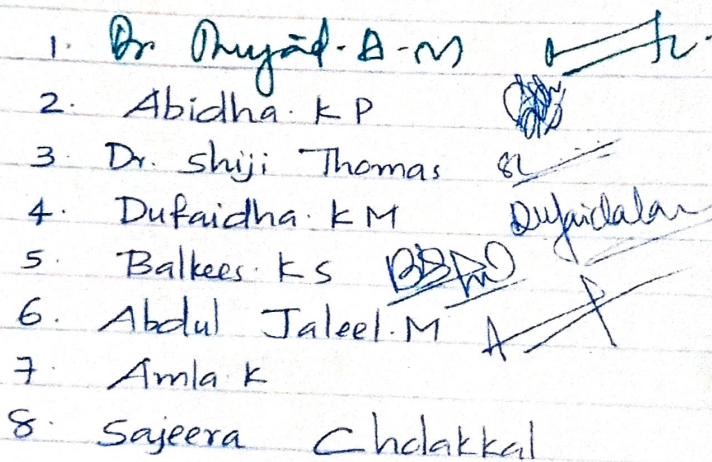 1. Dr A-M
2. Abidha. KP
3. Dr. Shiji Thomas
4. Dufaidha. KM Dufaidakm
5. Balkees. KS
6. Abdul Jaleel. M
7. Amla K
8. Sajeera Cholakkal